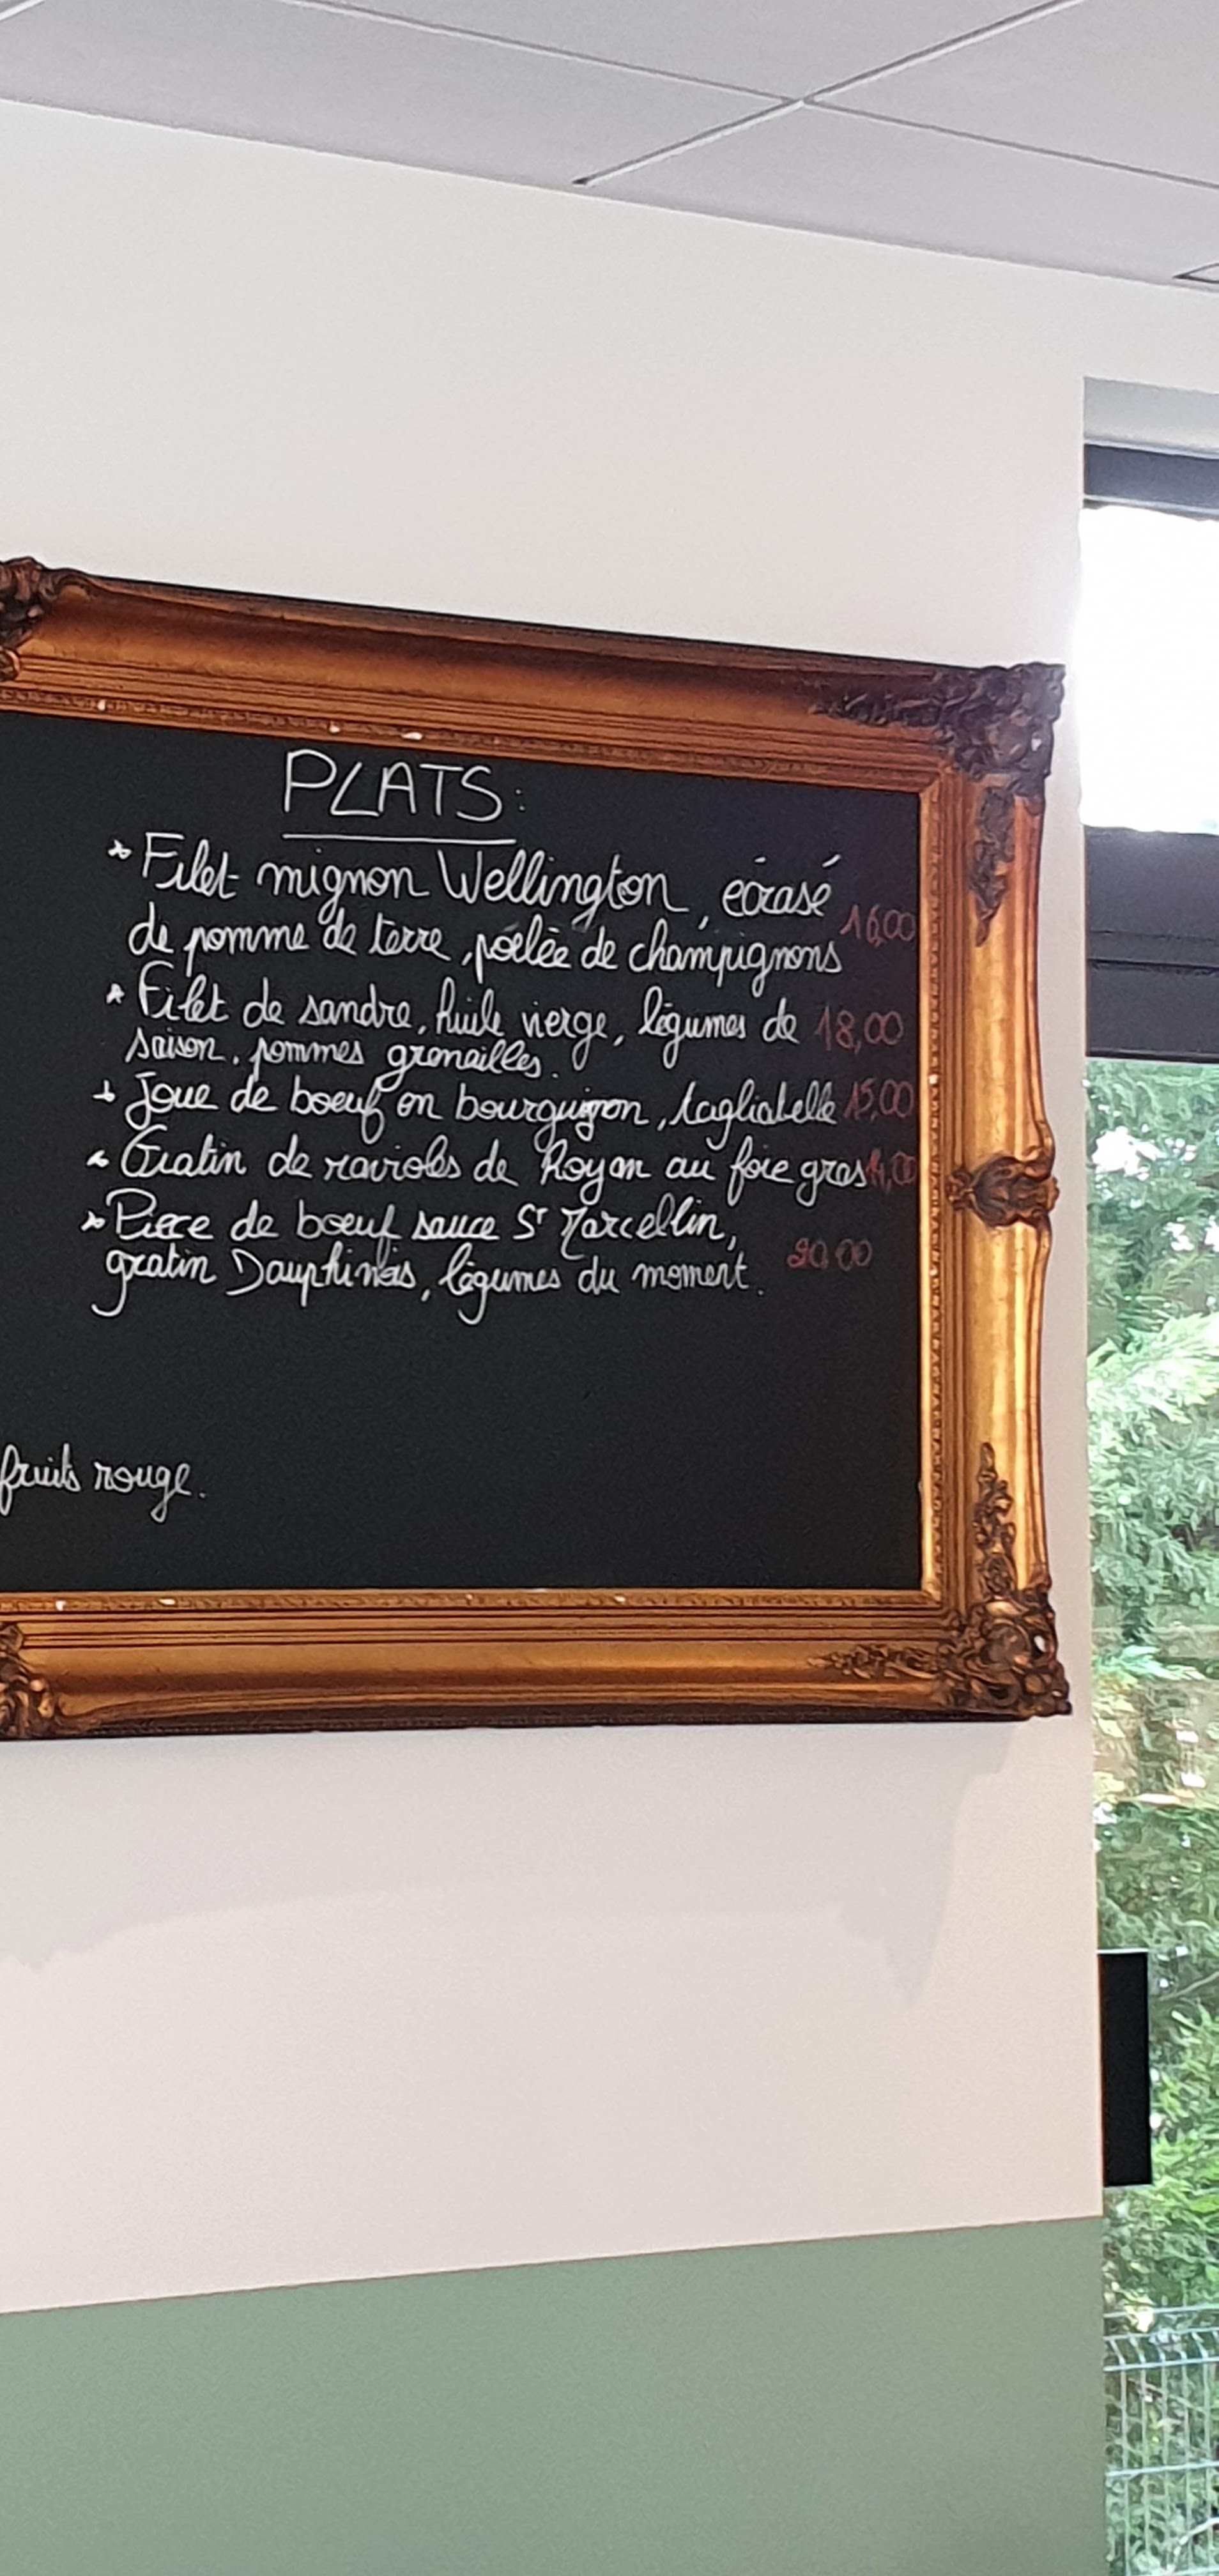 PLATS:
* Filet mignon Wellington, écrasé
de pomme de terre, poêlée de champignons 16,00
* Filet de sandre, huile vierge, légumes de 18,00
saison, pommes grenailles.
* Joue de boeuf en bourguignon, tagliatelle 15,00
* Gratin de ravioles de Royan au foie gras
* Piece de boeuf sauce St Marcellin,
gratin Dauphinois, légumes du moment. 20,00
fruits rouge.